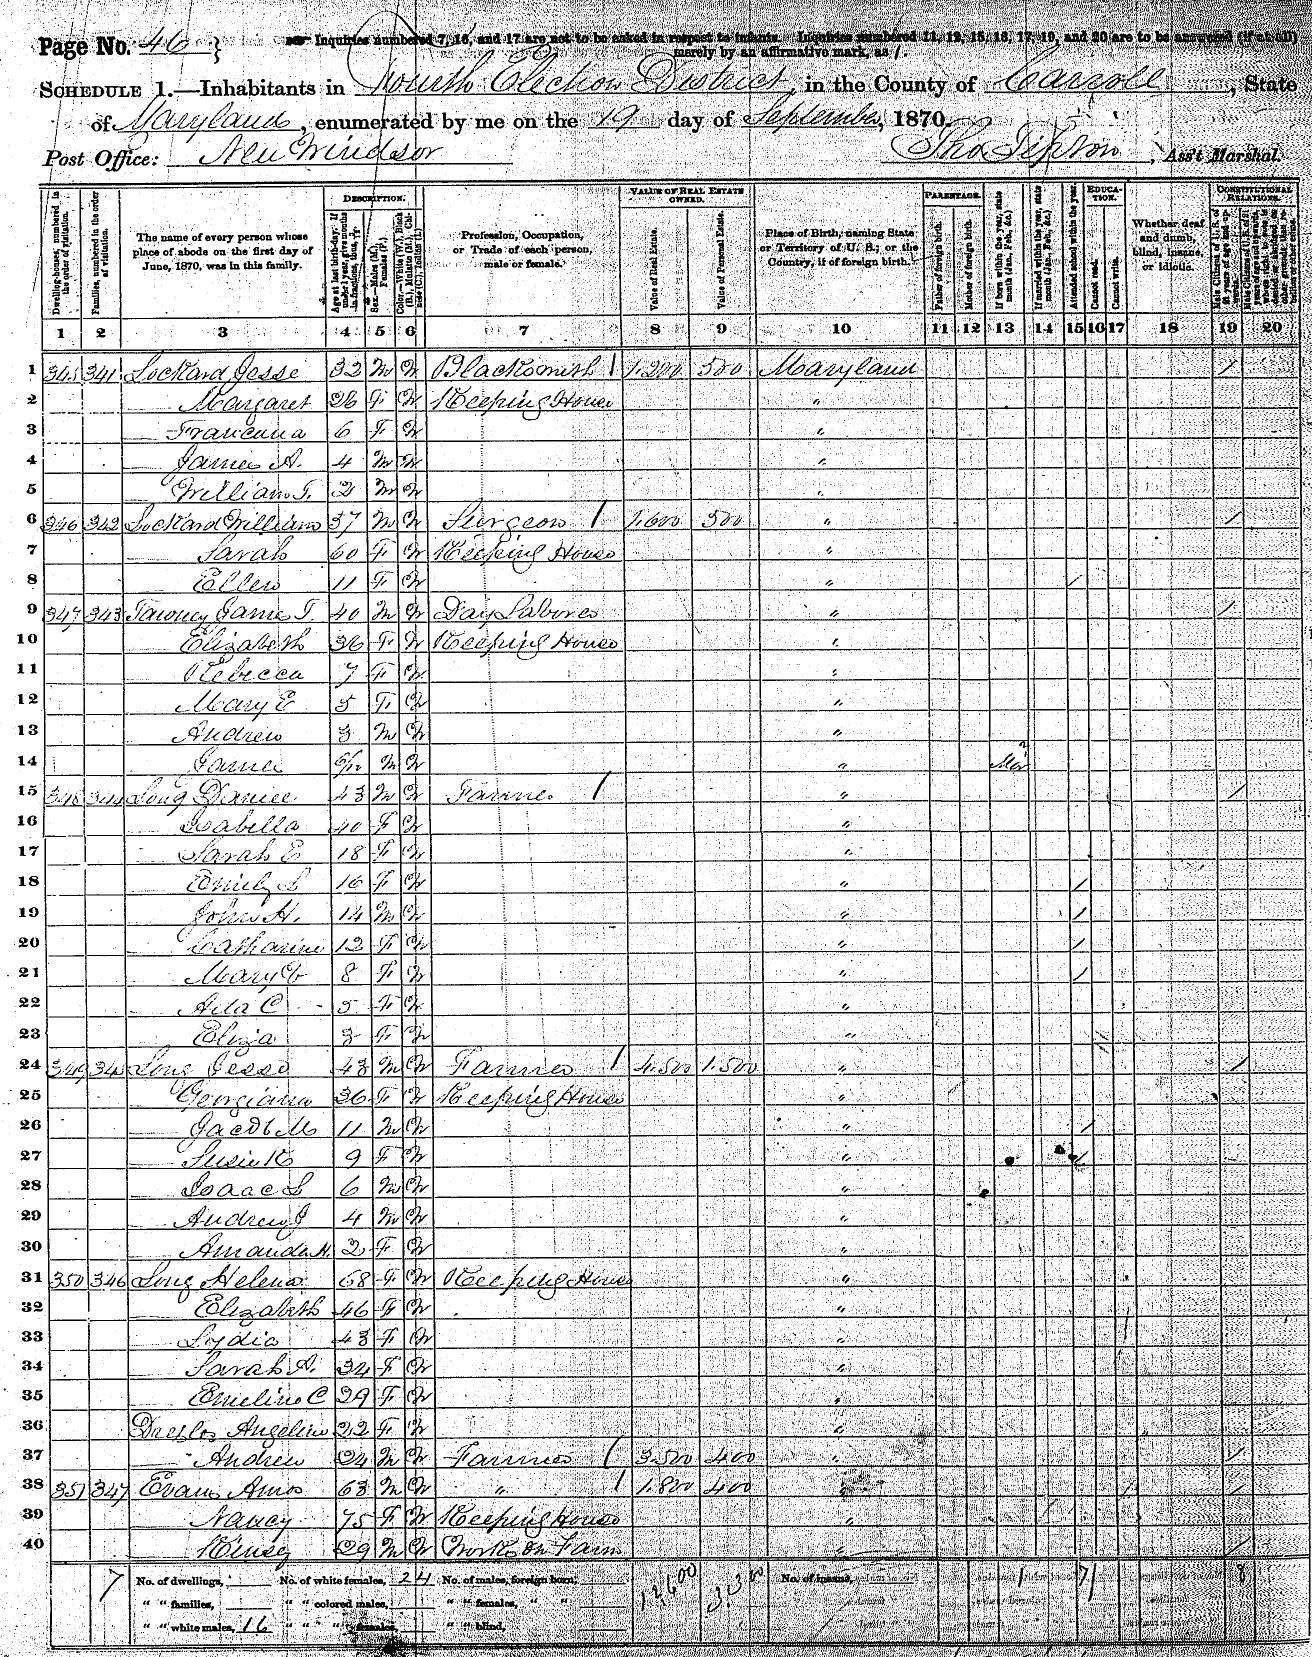 Page No. 46
Inquiries numbered 7, 16, and 17 are not to be asked in respect to infants. Inquiries numbered 11, 12, 15, 16, 17, 19, and 20 are to be answered (if at all)
merely by an affirmative mark, as /.
SCHEDULE 1.—Inhabitants in Fourth Election District, in the County of Carroll, State
of Maryland, enumerated by me on the 19 day of September, 1870.
Post Office: New Windsor Ass't Marshal.
DESCRIPTION. VALUE OF REAL ESTATE OWNED. PARENTAGE. EDUCATION. CONSTITUTIONAL RELATIONS.
Dwelling-houses, numbered in the order of visitation.
Families, numbered in the order of visitation.
The name of every person whose place of abode on the first day of June, 1870, was in this family.
Profession, Occupation, or Trade of each person, male or female.
Value of Real Estate.
Value of Personal Estate.
Place of Birth, naming State or Territory of U. S.; or the Country, if of foreign birth.
Father of foreign birth.
Mother of foreign birth.
If born within the year, state month (Jan., Feb., &c.)
If married within the year, state month (Jan., Feb., &c.)
Attended school within the year.
Cannot read.
Cannot write.
Whether deaf and dumb, blind, insane, or idiotic.
1 2 3 4 5 6 7 8 9 10 11 12 13 14 15 16 17 18 19 20
1 345 341 Lockard Jesse 32 M W Blacksmith / 1,200 500 Maryland /
2 — Margaret 26 F W Keeping House "
3 — 6 F W "
4 — James A. 4 M W "
5 — William T. 2 M W "
6 346 342 Lockard William 37 M W Surgeon / 1,600 500 " /
7 — Sarah 60 F W Keeping House "
8 — Ellen 11 F W " /
9 347 343 James T. 40 M W Day Laborer " /
10 — Elizabeth 36 F W Keeping House "
11 — Rebecca 7 F W "
12 — Mary E 5 F W "
13 — Andrew 3 M W "
14 — James M W " Mar
15 348 344 Long Daniel 43 M W Farmer / " /
16 — Isabella 40 F W "
17 — Sarah E 18 F W "
18 — Emily S 16 F W " /
19 — John H. 14 M W " /
20 — Catharine 12 F W " /
21 — Mary 8 F W " /
22 — Ada C 5 F W "
23 — Eliza 3 F W "
24 349 345 Long Jesse 43 M W Farmer / 4,500 1,500 " /
25 — Georgiana 36 F W Keeping House "
26 — Jacob M 11 M W " /
27 — Susie K 9 F W " /
28 — Isaac S 6 M W "
29 — Andrew J 4 M W "
30 — Amanda H. 2 F W "
31 350 346 Long Helena 68 F W Keeping House "
32 — Elizabeth 46 F W "
33 — Lydia 43 F W " /
34 — Sarah A. 34 F W "
35 — Emeline C 29 F W "
36 Angeline 22 F W "
37 — Andrew 24 M W Farmer / 3,500 400 " /
38 351 347 Evans Amos 63 M W " / 1,800 400 " / /
39 — Nancy 75 F W Keeping House "
40 — 29 M W Works on Farm " /
7 No. of dwellings, No. of white females, 24 No. of males, foreign born, 12,600 3,300 No. of insane, 1 7 8
" " families, " " colored males, " " females, " "
" " white males, 16 " " " females, " " blind,